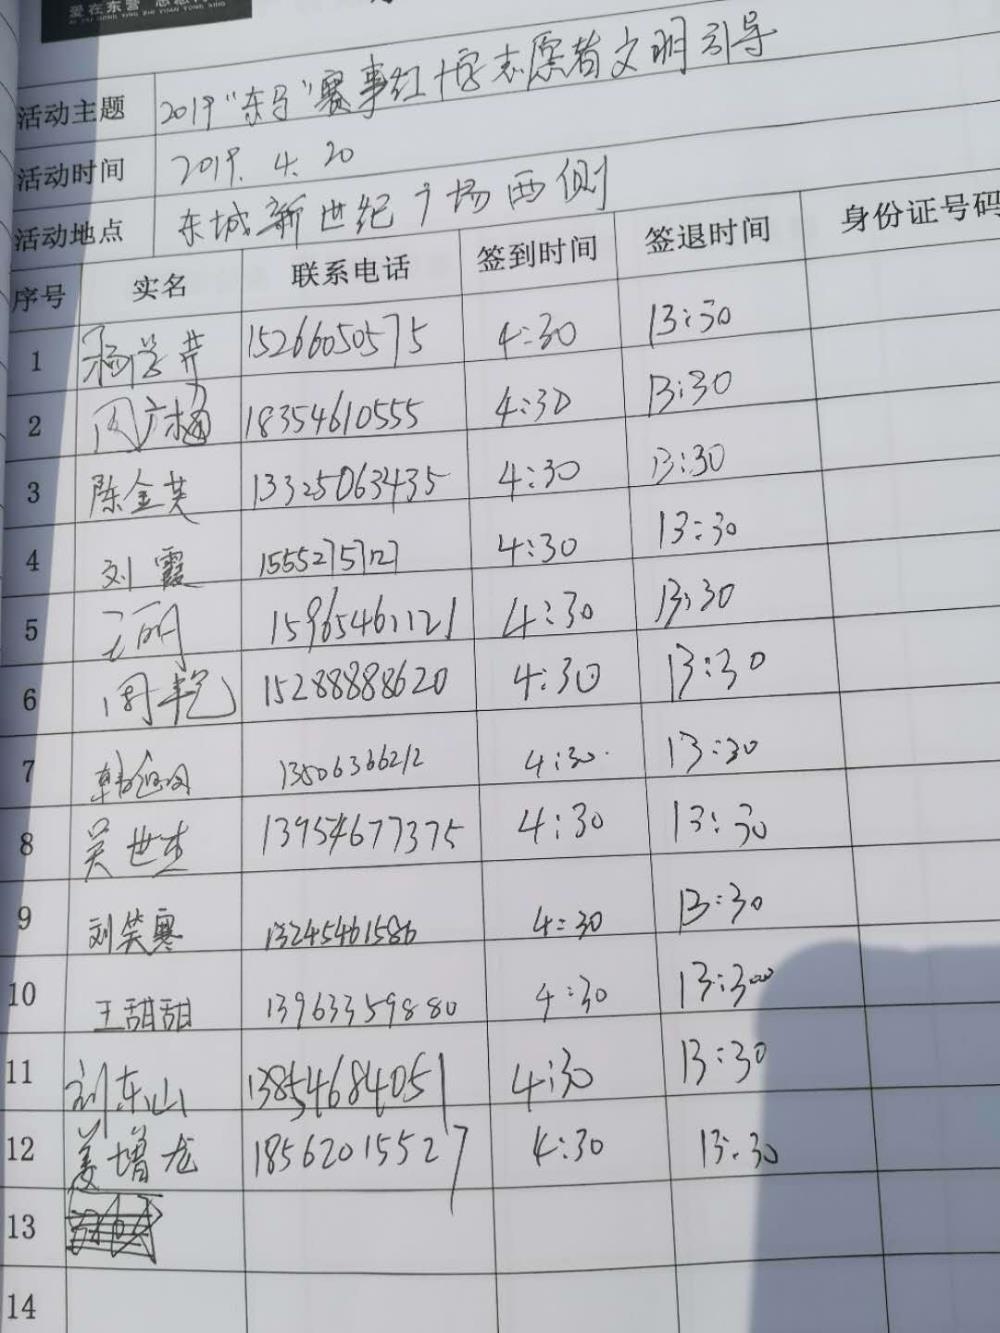 爱在东营
活动主题 2019"东马"赛事红十字志愿者文明引导
活动时间 2019. 4. 20
活动地点 东城新世纪广场西侧
序号 实名 联系电话 签到时间 签退时间 身份证号码
1 杨学芹 15266050575 4:30 13:30
2 周广梅 18354610555 4:30 13:30
3 陈金英 13325063435 4:30 13:30
4 刘霞 15552757127 4:30 13:30
5 王明 15965461121 4:30 13:30
6 周艳 15288888620 4:30 13:30
7 13506366212 4:30 13:30
8 吴世杰 13954677375 4:30 13:30
9 刘笑寒 13245461586 4:30 13:30
10 王甜甜 13963359880 4:30 13:30
11 刘东山 13854684051 4:30 13:30
12 姜增龙 18562015527 4:30 13:30
13
14